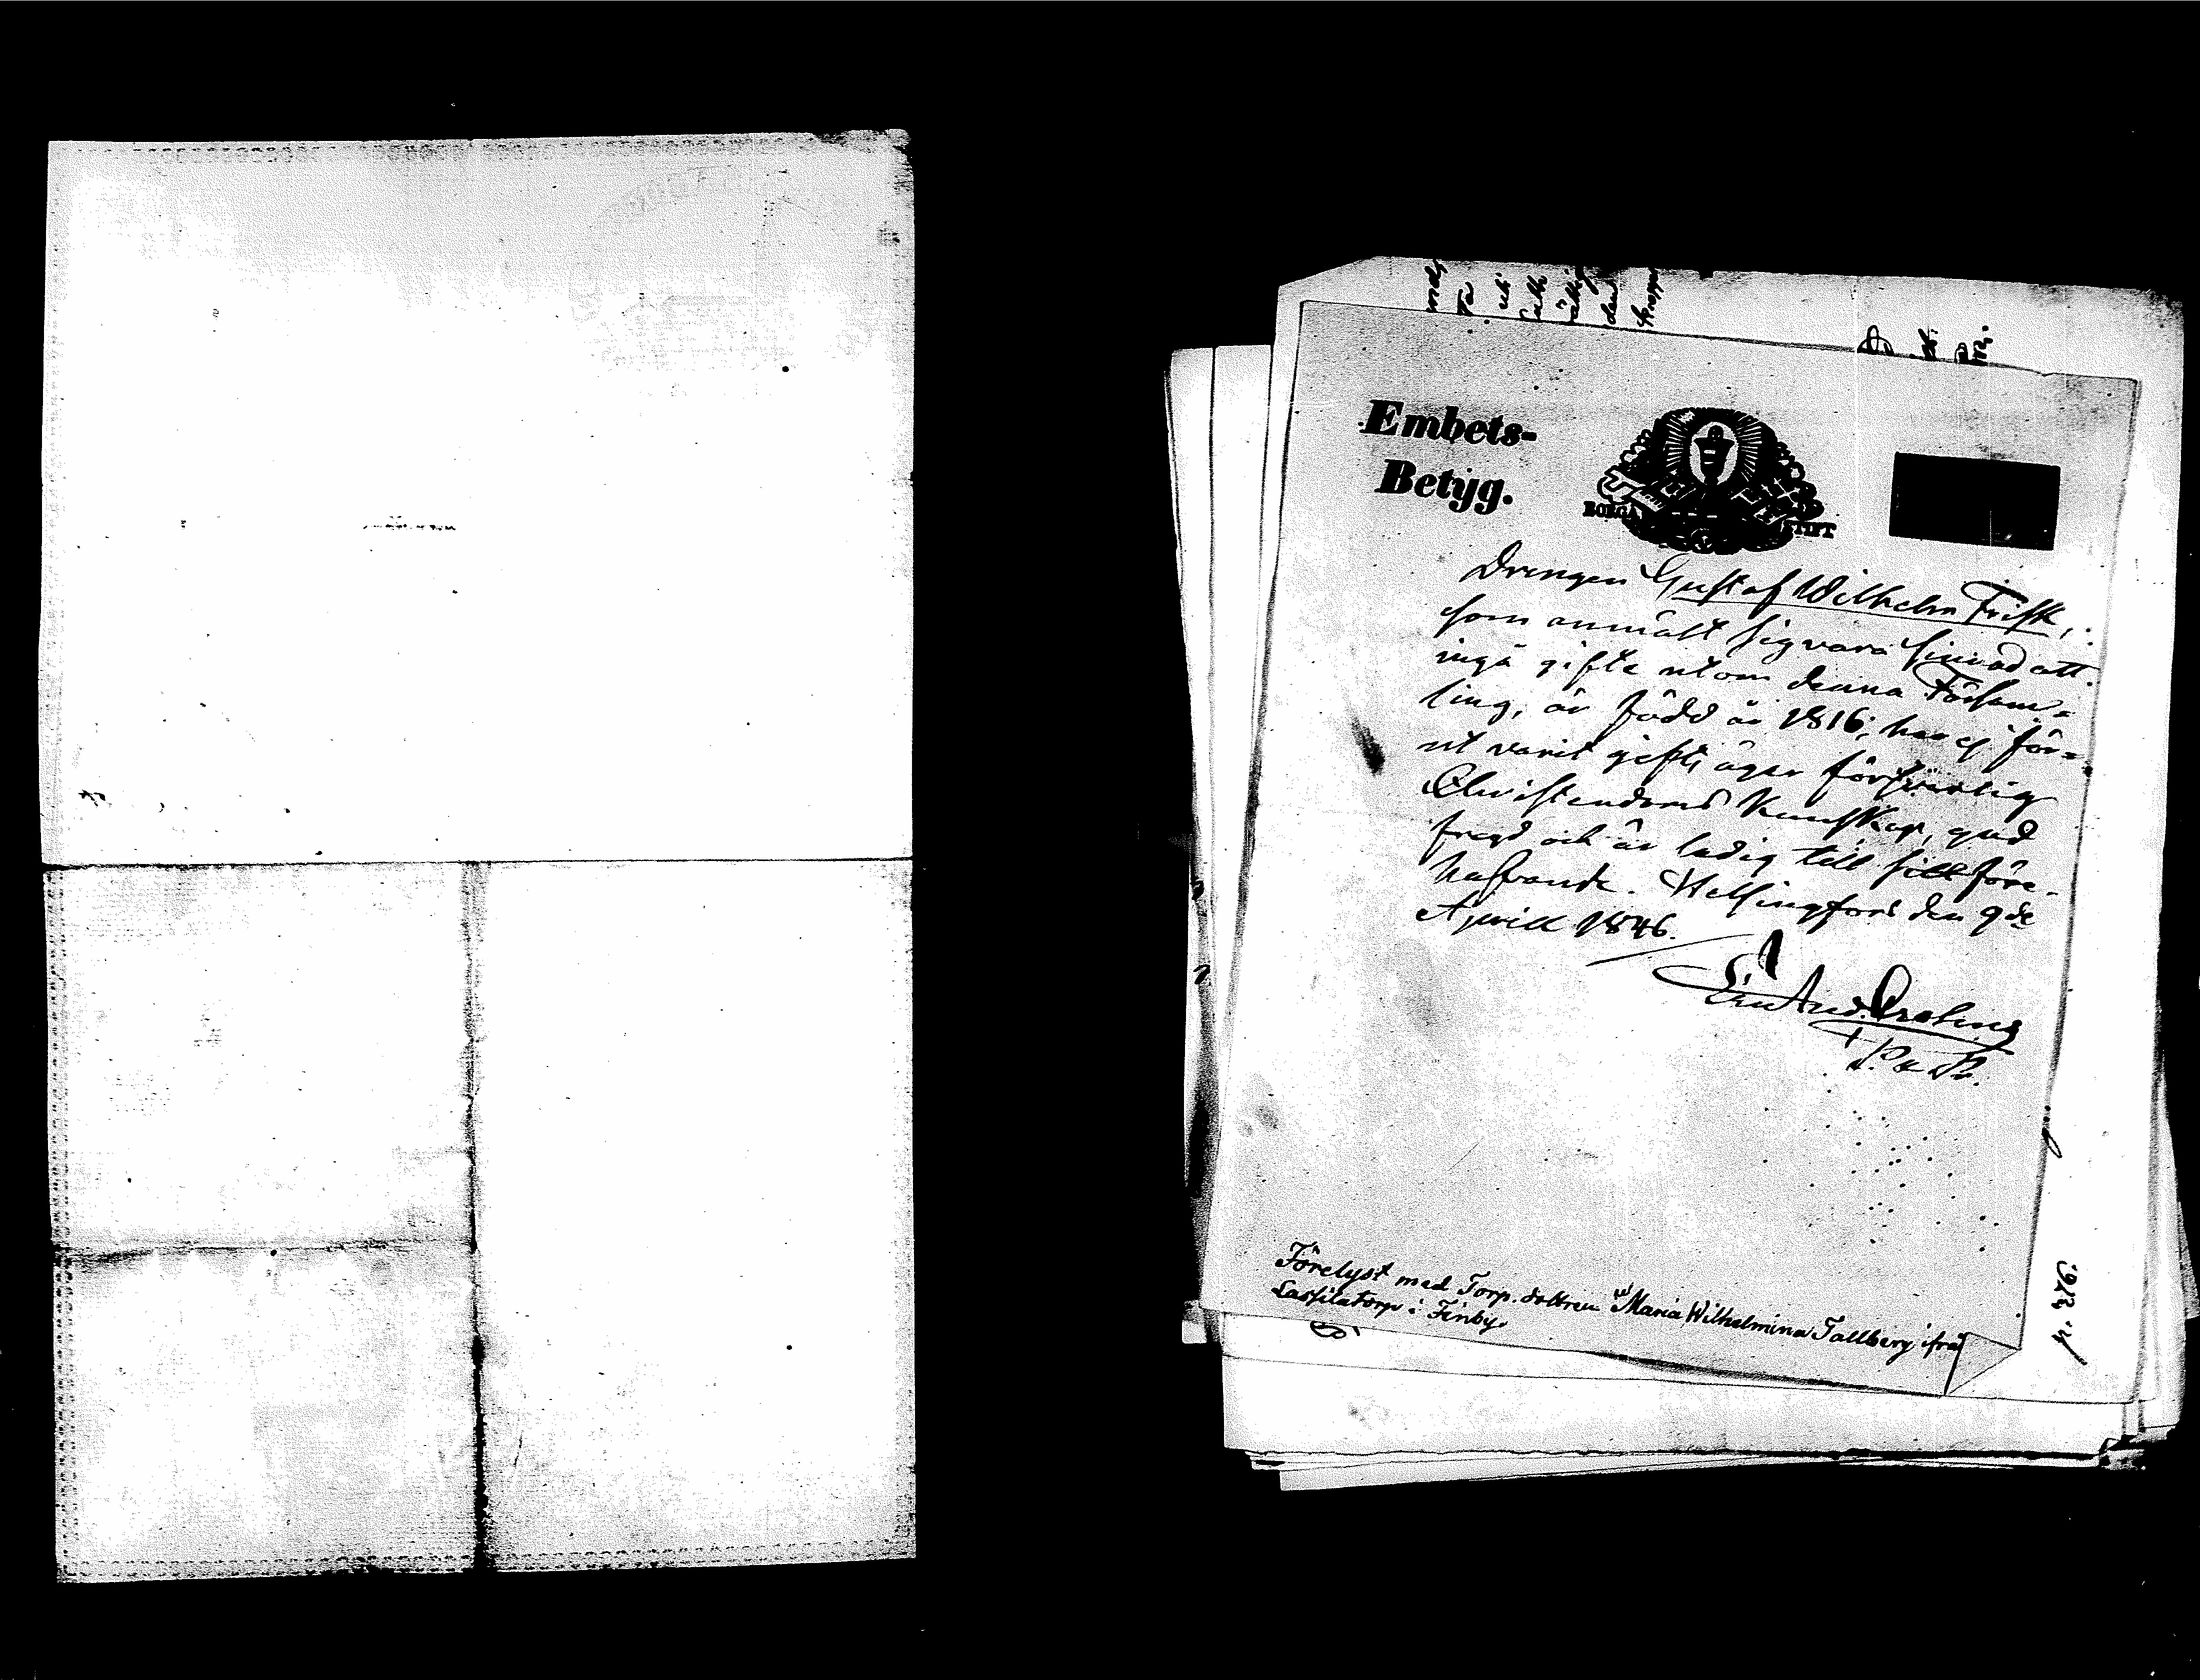 Embets-
Betyg.
BORGÅ STIFT
Drengen Gustaf Wilhelm Frisk,
som anmält sig vara sinnad att
ingå gifte utom denna Försam=
ling, är född år 1816; har ej för=
ut varit gift; äger försvarlig
Christendoms Kunskap, god
fregd och är ledig till sitt före-
hafvande. Helsingfors den 9de
Aprill 1846.
Förelyst med Torp. dottren Maria Wilhelmina Tallberg ifrå
Lassilatorp i Finby.